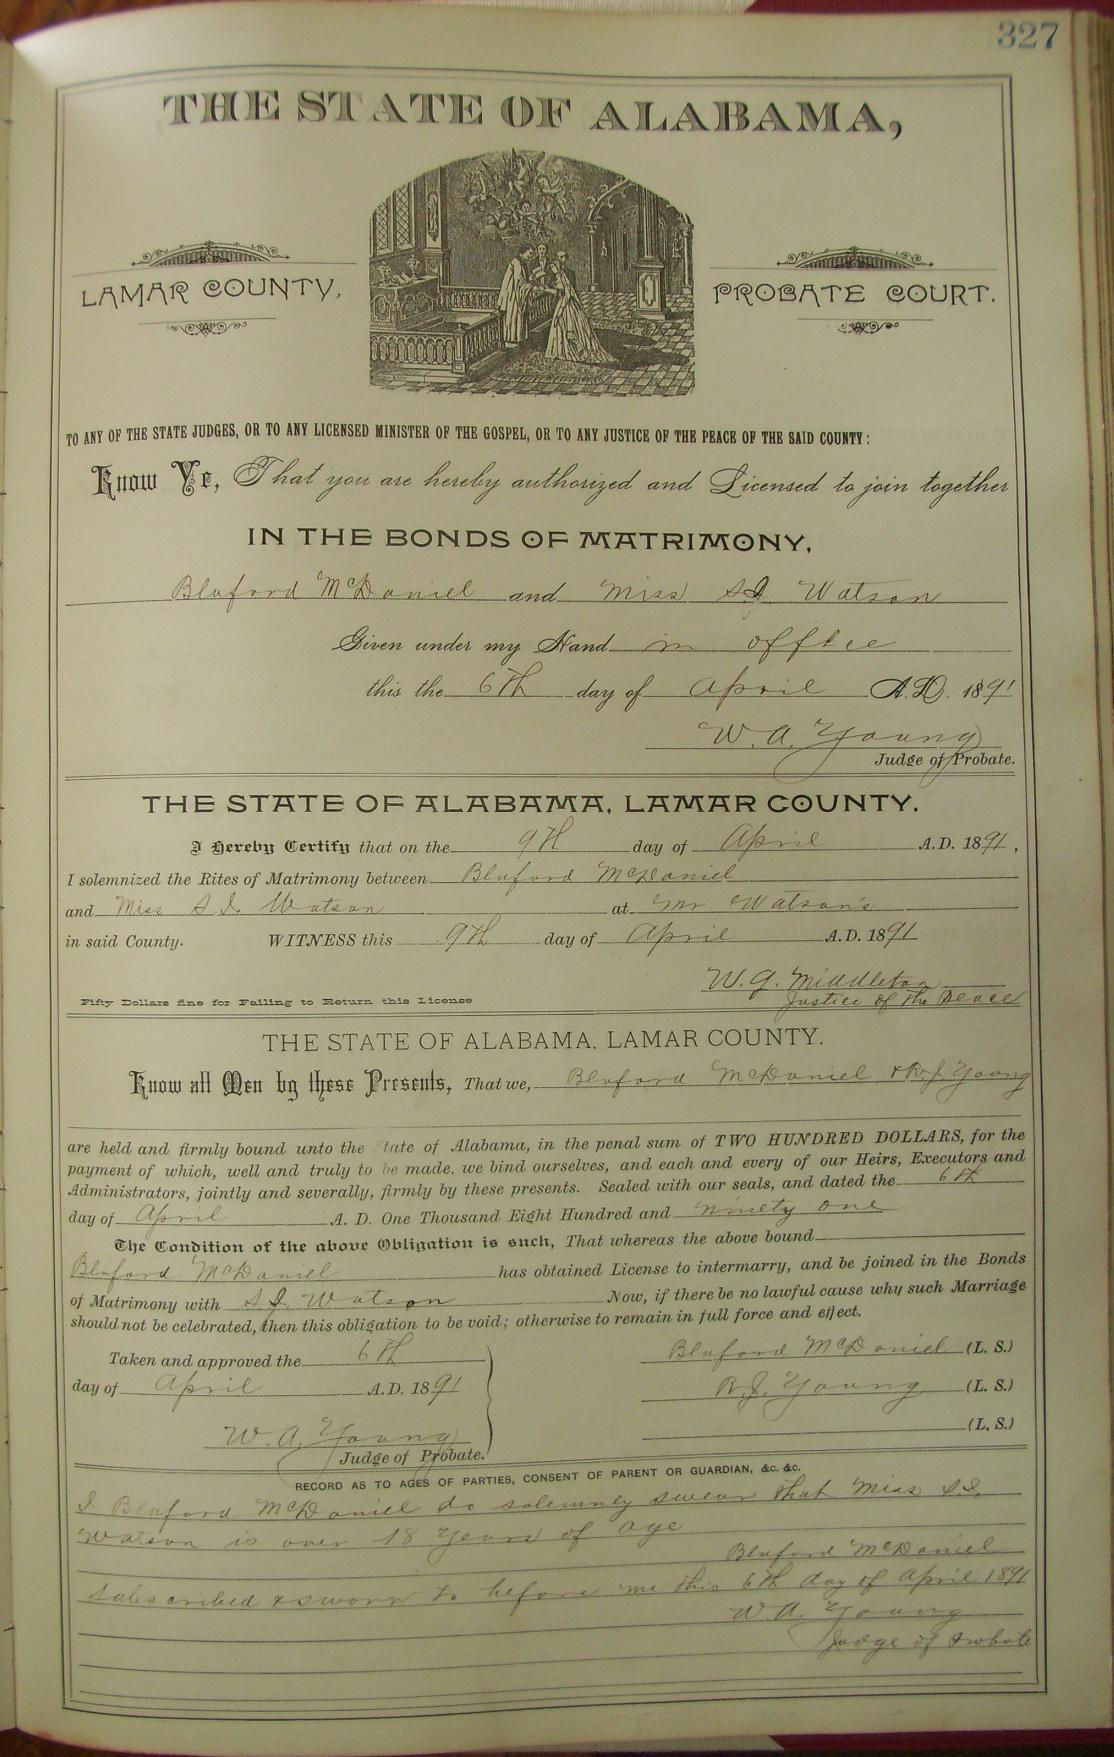 327
THE STATE OF ALABAMA,
LAMAR COUNTY,
PROBATE COURT.
TO ANY OF THE STATE JUDGES, OR TO ANY LICENSED MINISTER OF THE GOSPEL, OR TO ANY JUSTICE OF THE PEACE OF THE SAID COUNTY:
Know Ye, That you are hereby authorized and Licensed to join together
IN THE BONDS OF MATRIMONY,
Bluford McDaniel and Miss S I Watson
Given under my Hand in office
this the 6th day of April A.D. 1891
W. A. Young
Judge of Probate.
THE STATE OF ALABAMA, LAMAR COUNTY.
I Hereby Certify that on the 9th day of April A.D. 1891,
I solemnized the Rites of Matrimony between Bluford McDaniel
and Miss S I. Watson at Mr Watson's
in said County. WITNESS this 9th day of April A.D. 1891
W. G. Middleton
Fifty Dollars fine for Failing to Return this License Justice of the Peace
THE STATE OF ALABAMA, LAMAR COUNTY.
Know all Men by these Presents, That we, Bluford McDaniel & R. J. Young
are held and firmly bound unto the State of Alabama, in the penal sum of TWO HUNDRED DOLLARS, for the
payment of which, well and truly to be made, we bind ourselves, and each and every of our Heirs, Executors and
Administrators, jointly and severally, firmly by these presents. Sealed with our seals, and dated the 6th
day of April A. D. One Thousand Eight Hundred and ninety one
The Condition of the above Obligation is such, That whereas the above bound
Bluford McDaniel has obtained License to intermarry, and be joined in the Bonds
of Matrimony with S I Watson Now, if there be no lawful cause why such Marriage
should not be celebrated, then this obligation to be void; otherwise to remain in full force and effect.
Taken and approved the 6th
day of April A.D. 1891
W. A. Young
Judge of Probate.
Bluford McDaniel (L. S.)
R. J. Young (L. S.)
(L. S.)
RECORD AS TO AGES OF PARTIES, CONSENT OF PARENT OR GUARDIAN, &c. &c.
I Bluford McDaniel do solemney swear that Miss S. I.
Watson is over 18 Years of age
Bluford McDaniel
Subscribed & sworn to before me this 6th day of April 1891
W A. Young
Judge of Probate